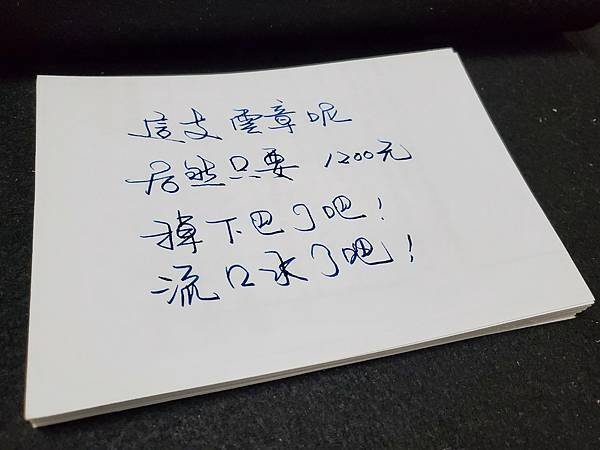 這支雲章呢
居然只要 1200元
掉下巴了吧!
流口水了吧!